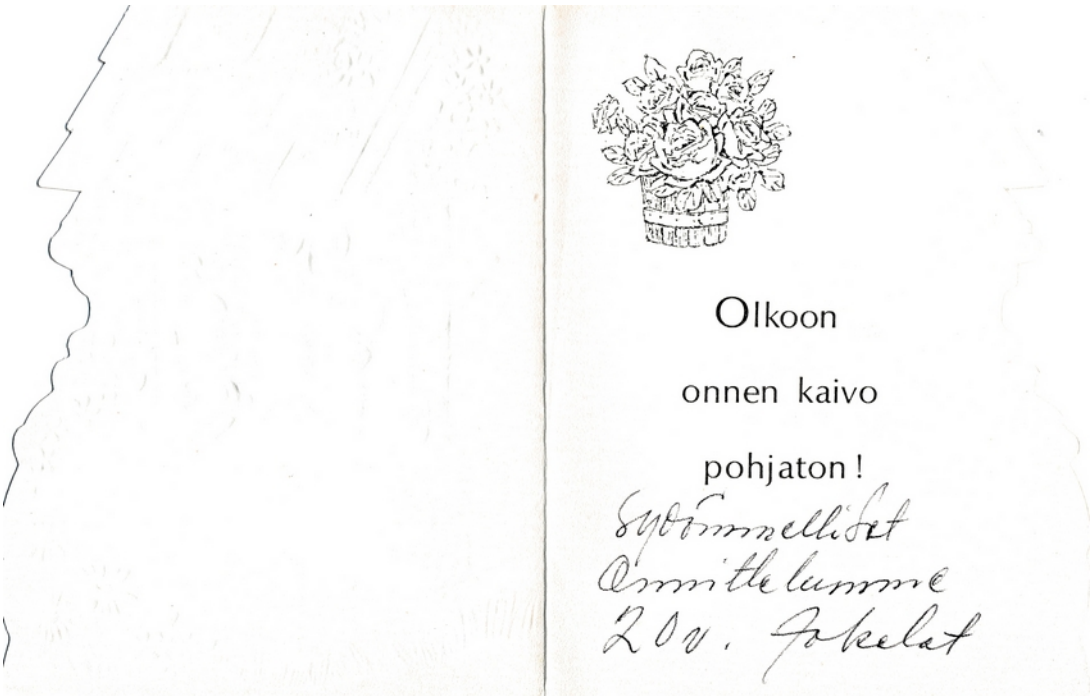 Olkoon
onnen kaivo
pohjaton!
Sydämmelliset
Onnittelumme
20 v. Jokelat